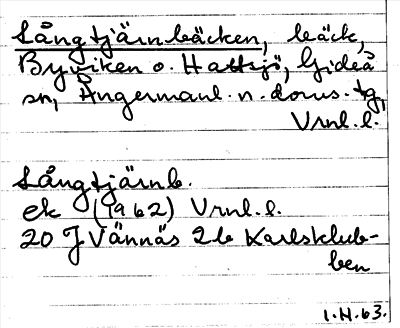 Långtjärnbäcken, bäck,
Byviken o. Hattsjö, Gideå
sn, Ångermanl. n. doms. tg,
Vrnl. l.
Långtjärnb.
ek (1962) Vrnl. l.
20 J Vännäs 2b Karlsklub-
ben
I.H.63.